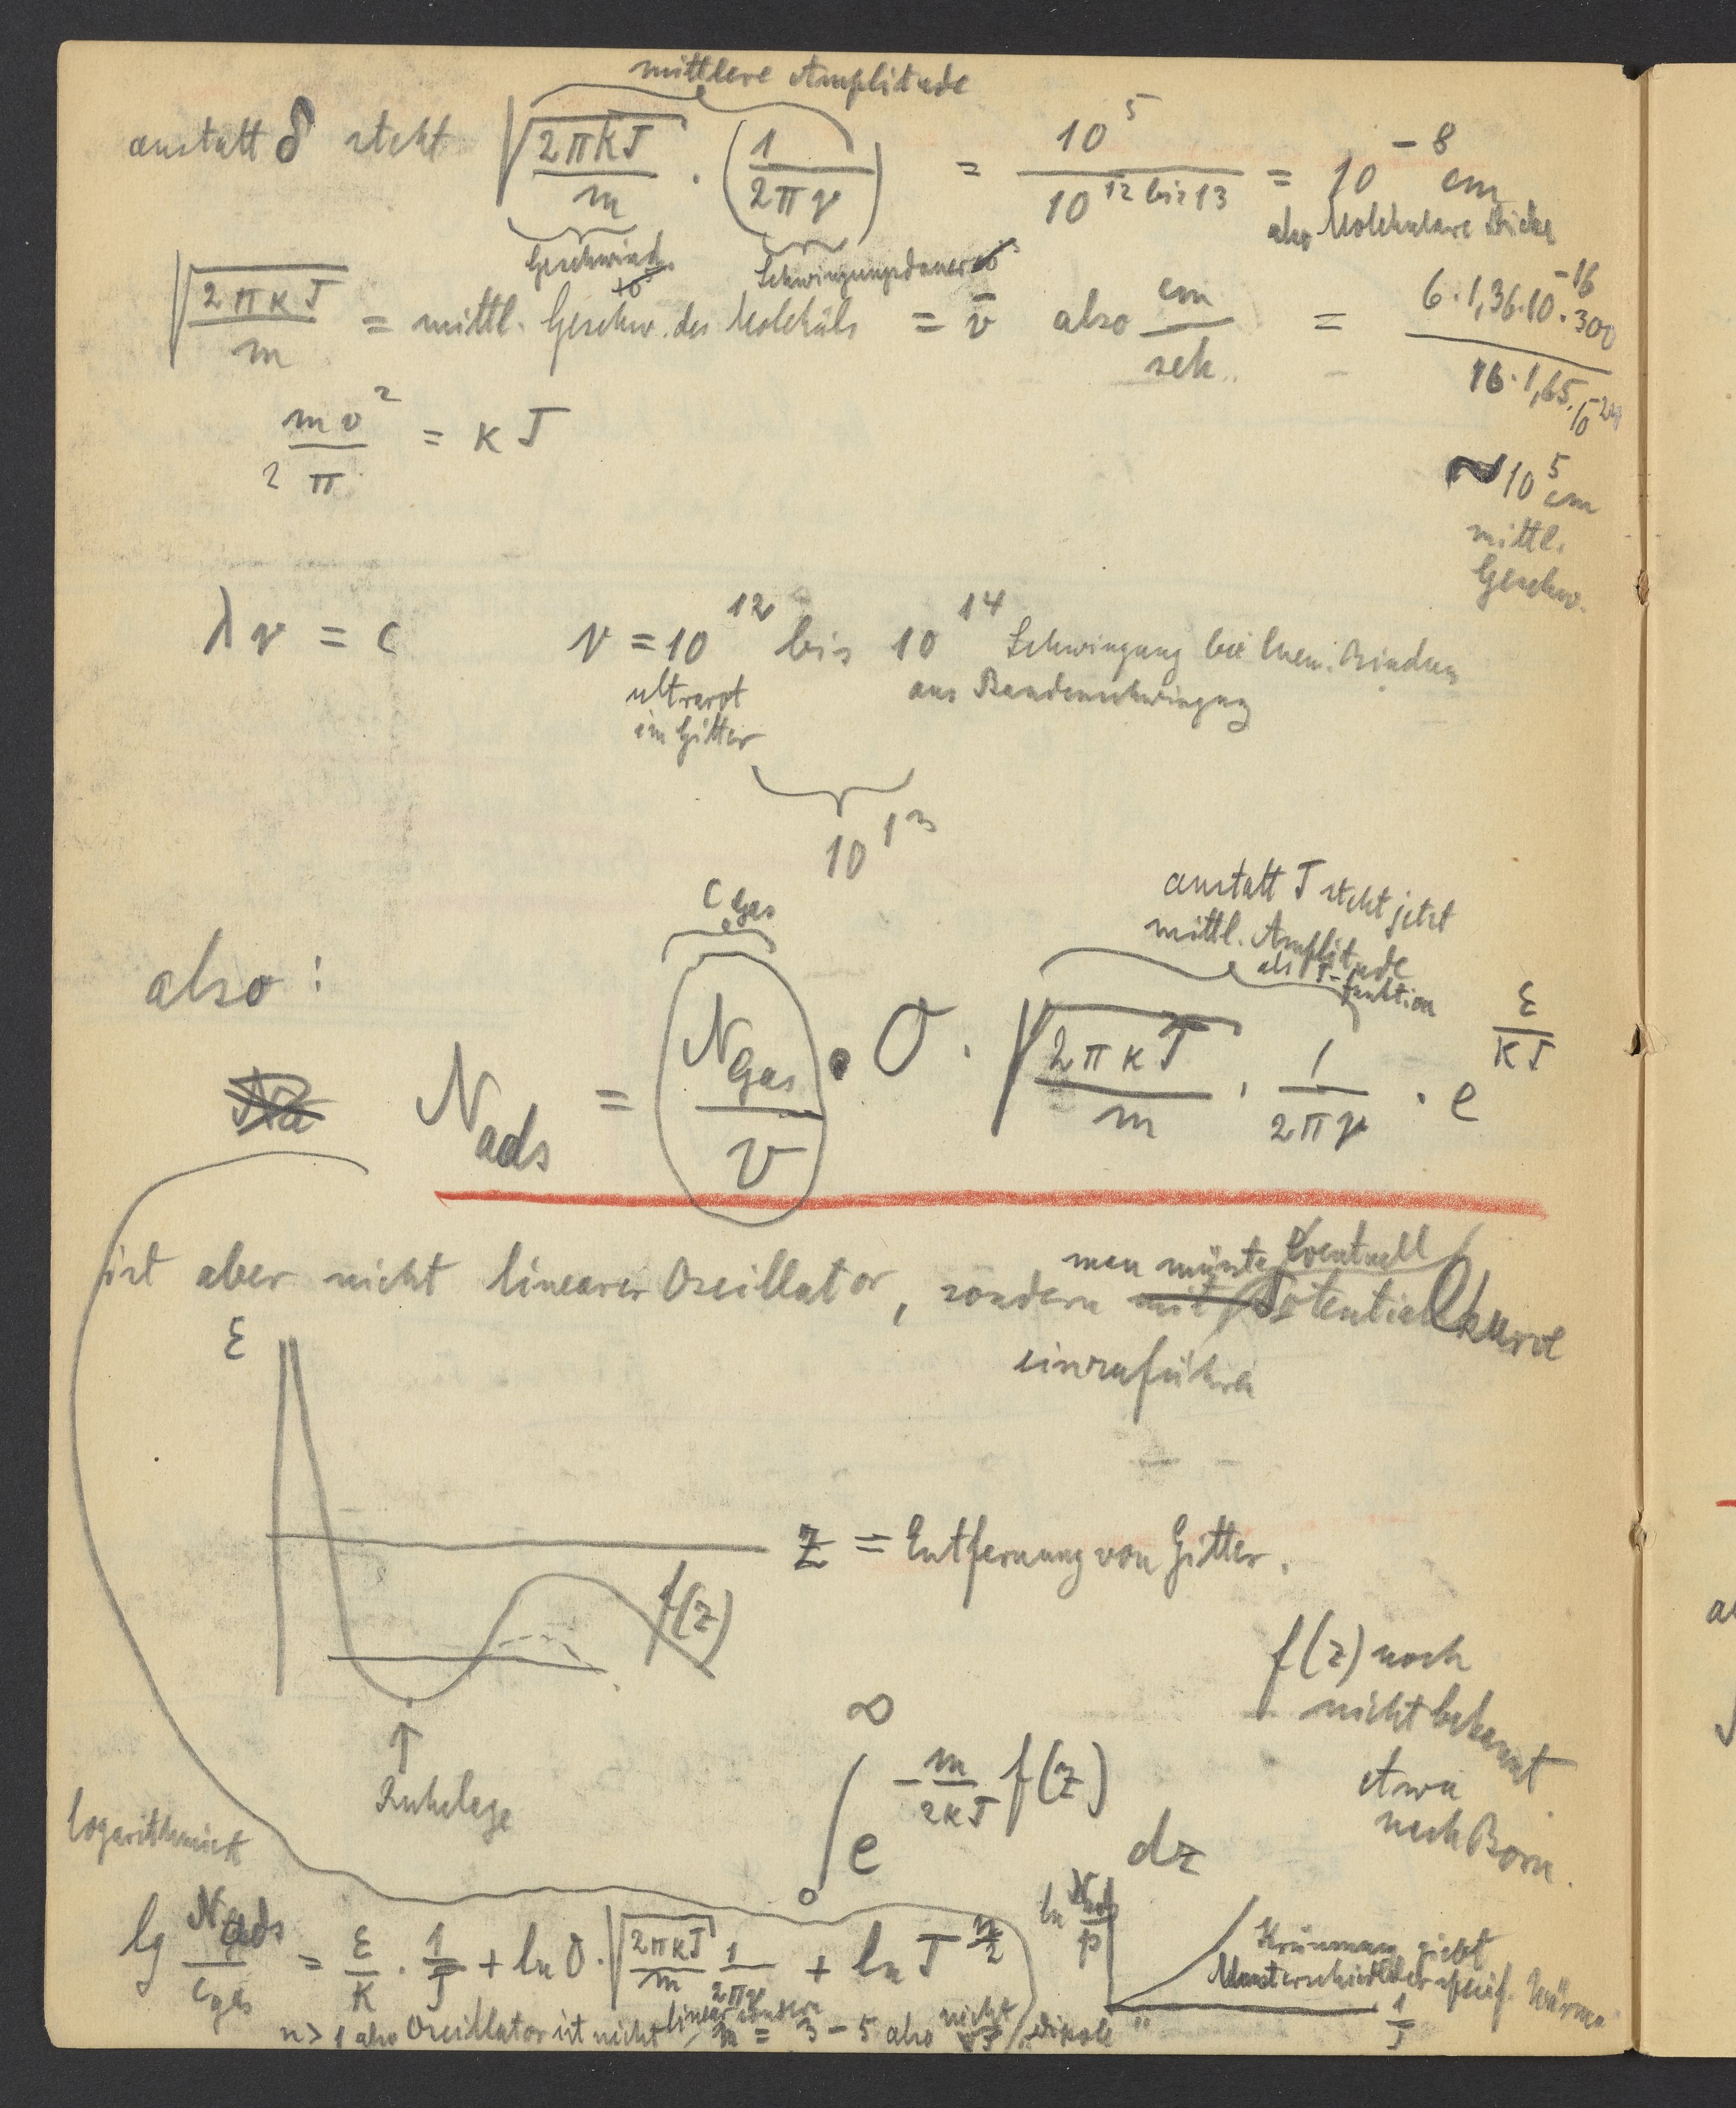 mittlere Amplitude
anstatt δ steht √(2πkT/m) · (1/2πν) = 10^5 / 10^12 bis 13 = 10^-8 cm
also Molekulare Dicke
Geschwind. Schwingungsdauer
√(2πkT/m) = mittl. Geschw. des Moleküls = v̄ also cm/sek. = 6·1,36·10^-16·300 / 16·1,65·10^-24
mv²/2π = kT
~10^5 cm
mittl.
Geschw.
λν = c ν = 10^12 bis 10^14 Schwingung bei chem. Bindung
ultrarot aus Bandenschwingung
im Gitter
10^13
c Gas
anstatt T steht jetzt
mittl. Amplitude
als T-funktion
also:
N_ads = N_Gas/V · O · √(2πkT/m) · 1/2πν · e^(ε/kT)
ist aber nicht linearer Oscillator, sondern man müsste eventuell Potentialkurve
einzuführen
ε
z = Entfernung von Gitter.
f(z)
f(z) noch
nicht bekannt
etwa
nach Born.
↑
Ruhelage
∫₀^∞ e^(-m/2kT f(z)) dz
logarithmiert
lg N_ads/c_gas = ε/k · 1/T + ln O · √(2πkT/m) 1/2πν + ln T^(n/2)
ln N_ads/p
Krümmung giebt
Unterschied der specif. Wärme
1/T
n > 1 also Oscillator ist nicht linear sondern n = 3 - 5 also nicht √T "Dipole"